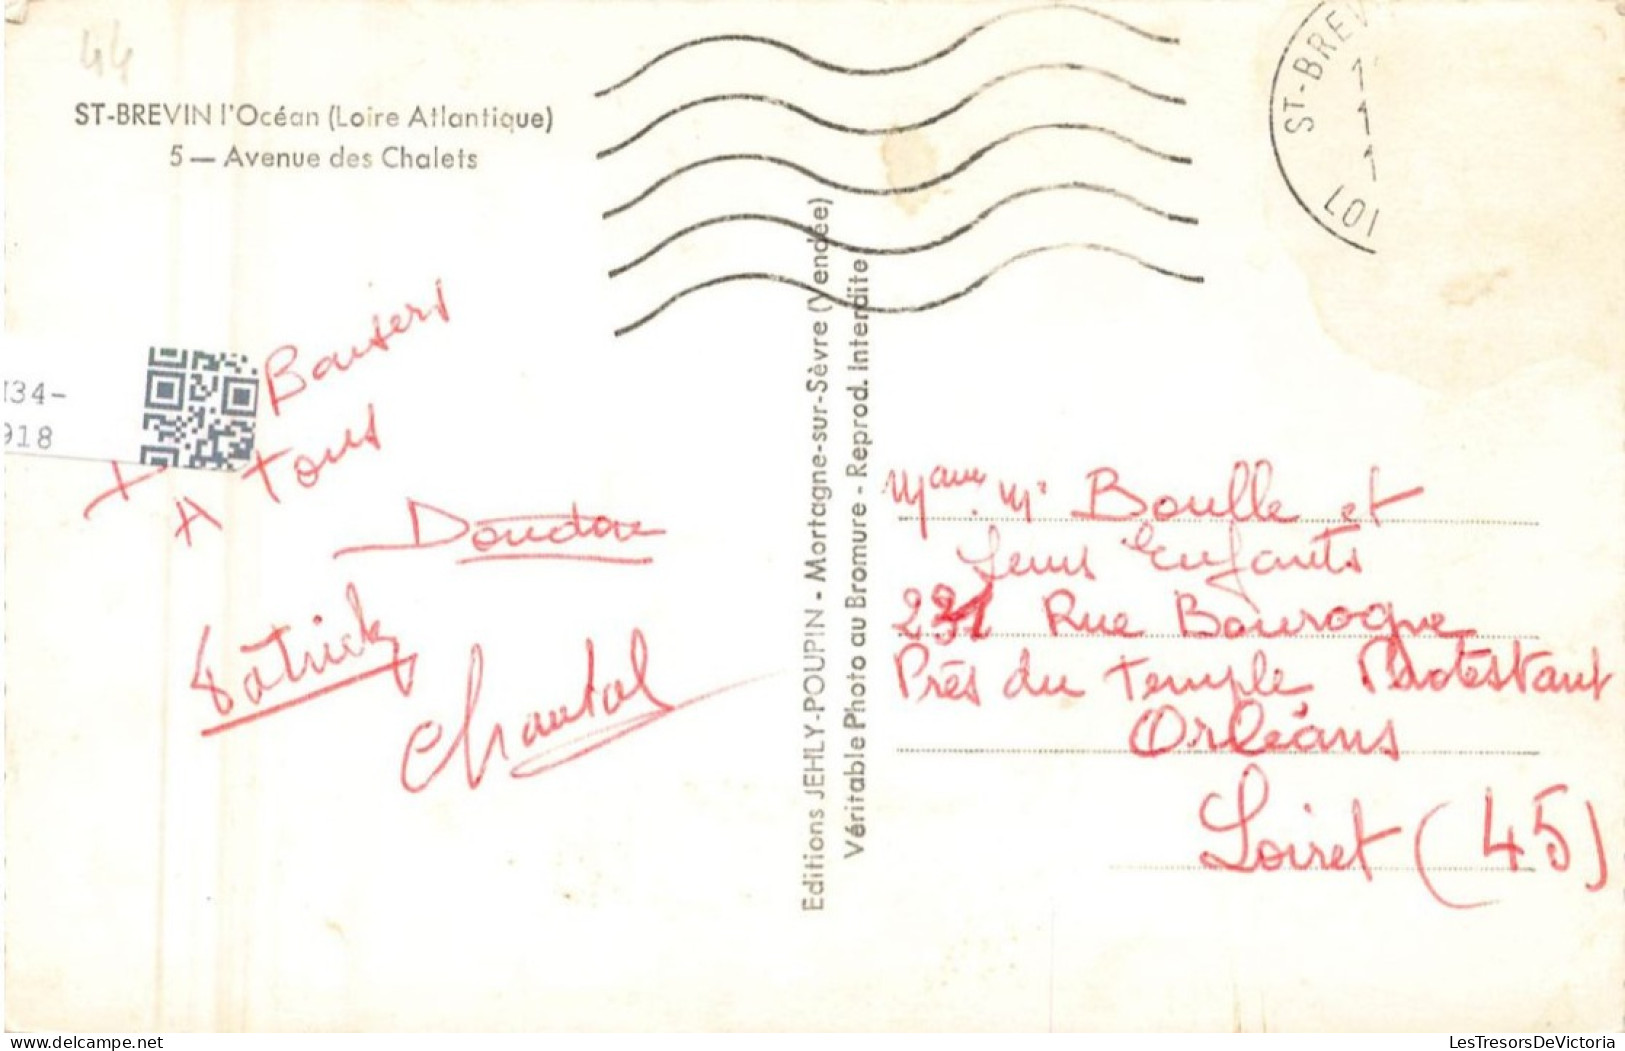 44
ST-BREVIN l'Océan (Loire Atlantique)
5 — Avenue des Chalets
ST-BREV
107
34-
918
Baisers
A tous
Doudou
Patrick
Chantal
Editions JEHLY-POUPIN - Mortagne-sur-Sèvre (Vendée)
Véritable Photo au Bromure - Reprod. Interdite
Boulle et
Leurs Enfants
231 Rue Bourogne
Près du Temple Protestant
Orléans
Loiret (45)
delcampe.net
LesTresorsDeVictoria